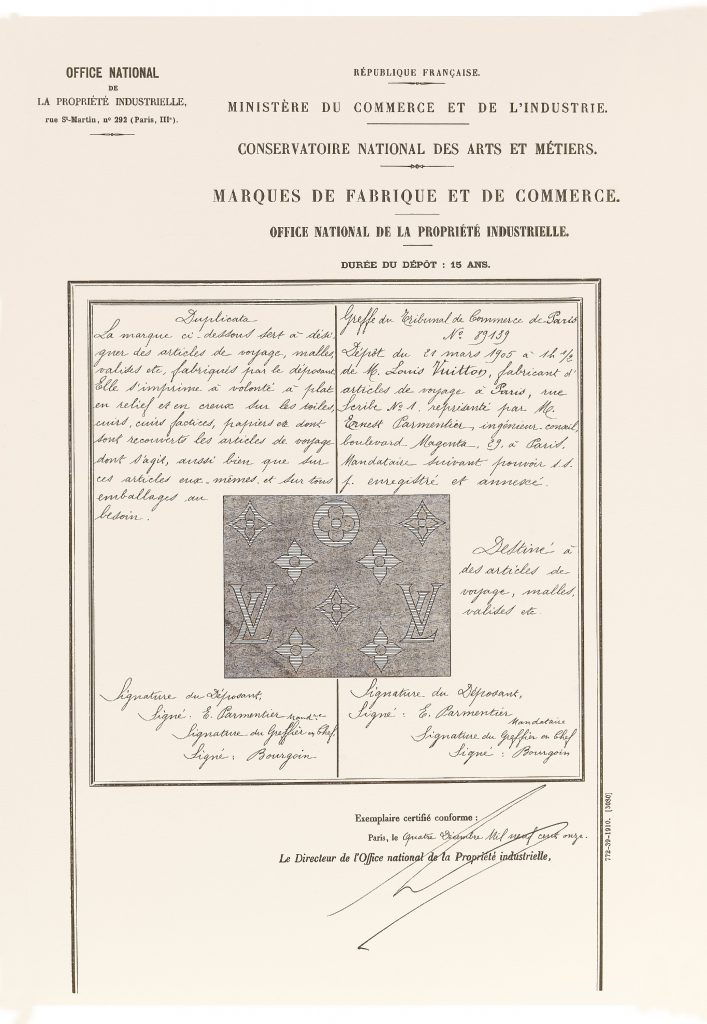 OFFICE NATIONAL
DE
LA PROPRIÉTÉ INDUSTRIELLE,
rue St-Martin, n° 292 (Paris, IIIe).
RÉPUBLIQUE FRANÇAISE.
MINISTÈRE DU COMMERCE ET DE L'INDUSTRIE.
CONSERVATOIRE NATIONAL DES ARTS ET MÉTIERS.
MARQUES DE FABRIQUE ET DE COMMERCE.
OFFICE NATIONAL DE LA PROPRIÉTÉ INDUSTRIELLE.
DURÉE DU DÉPÔT : 15 ANS.
Duplicata
La marque ci-dessous sert à dési
gner des articles de voyage, malles,
valises etc, fabriqués par le déposant
Elle s'imprime à volonté à plat
en relief et en creux sur les toiles,
cuirs, cuirs factices, papiers etc dont
sont recouverts les articles de voyage
dont s'agit, aussi bien que sur
ces articles eux-mêmes, et sur tous
emballages au
besoin.
Greffe du Tribunal de Commerce de Paris
N° 89139
Dépôt du 21 mars 1905 à 1h 1/2
de M. Louis Vuitton, fabricant d'
articles de voyage à Paris, rue
Scribe N° 1, représenté par M.
Ernest Parmentier, ingénieur-conseil,
boulevard Magenta, 29, à Paris.
Mandataire suivant pouvoir s.s.
p. enregistré et annexé.
LV
LV
Destiné à
des articles de
voyage, malles,
valises etc
Signature du Déposant,
Signé : E. Parmentier Mandre
Signature du Greffier en Chef
Signé : Bourgoin
Signature du Déposant,
Signé : E. Parmentier
Mandataire
Signature du Greffier en Chef
Signé : Bourgoin
Exemplaire certifié conforme :
Paris, le Quatre Décembre Mil neuf cent onze.
Le Directeur de l'Office national de la Propriété industrielle,
772-39-1910. [3080]